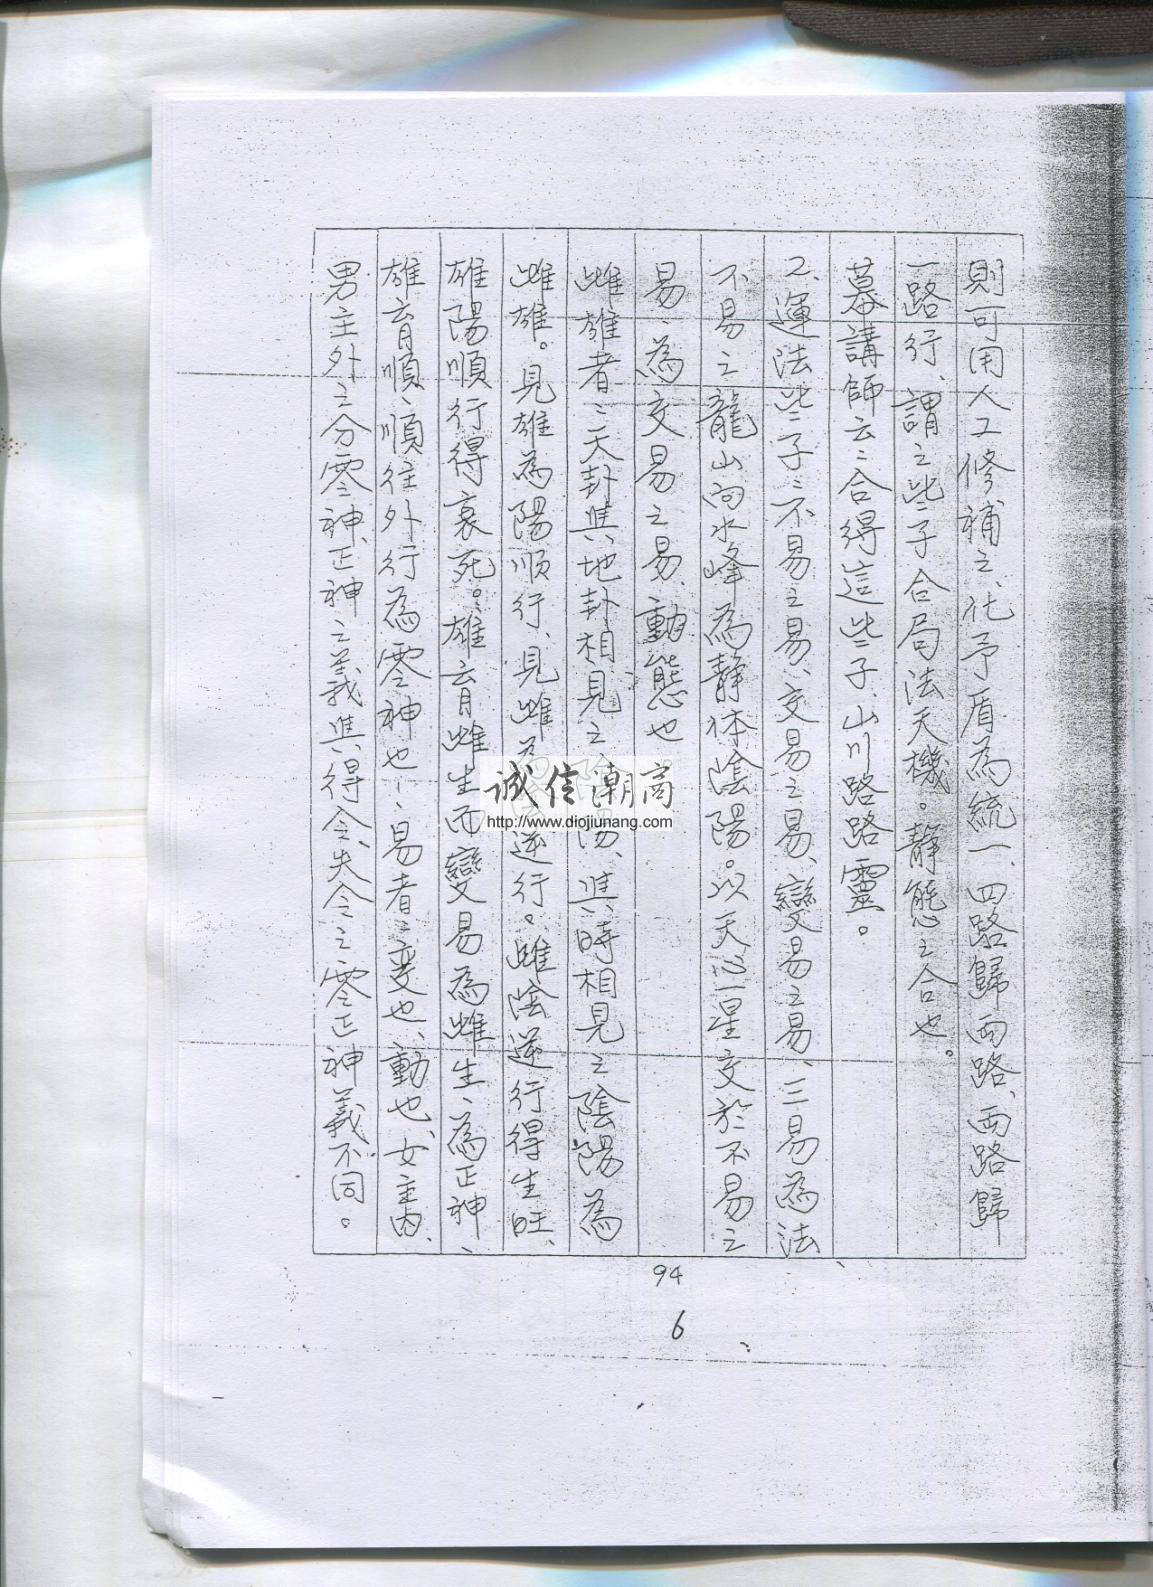 則可用人工修補之、化予盾為統一、四路歸兩路、兩路歸
一路行、謂之些子合局法天機。靜態之合也。
慕講師云：合得這些子、山川路路靈。
2、運法些子：不易之易、交易之易、變易之易、三易為法
不易之龍山向水峰為靜体陰陽。以天心一星交於不易之
易、為交易之易、動態也
雌雄者：天卦與地卦相見之陰陽、與時相見之陰陽為
雌雄。見雄為陽順行、見雌為逆行。雌陰逆行得生旺、
雄陽順行得衰死。：雄育雌生而變易為雌生、為正神、
雄育順、順往外行為零神也！、易者：變也、動也、女主內、
男主外之分零神、正神之義與得令、失令之零正神義不同。
94
6
诚信潮商
http://www.diojiunang.com